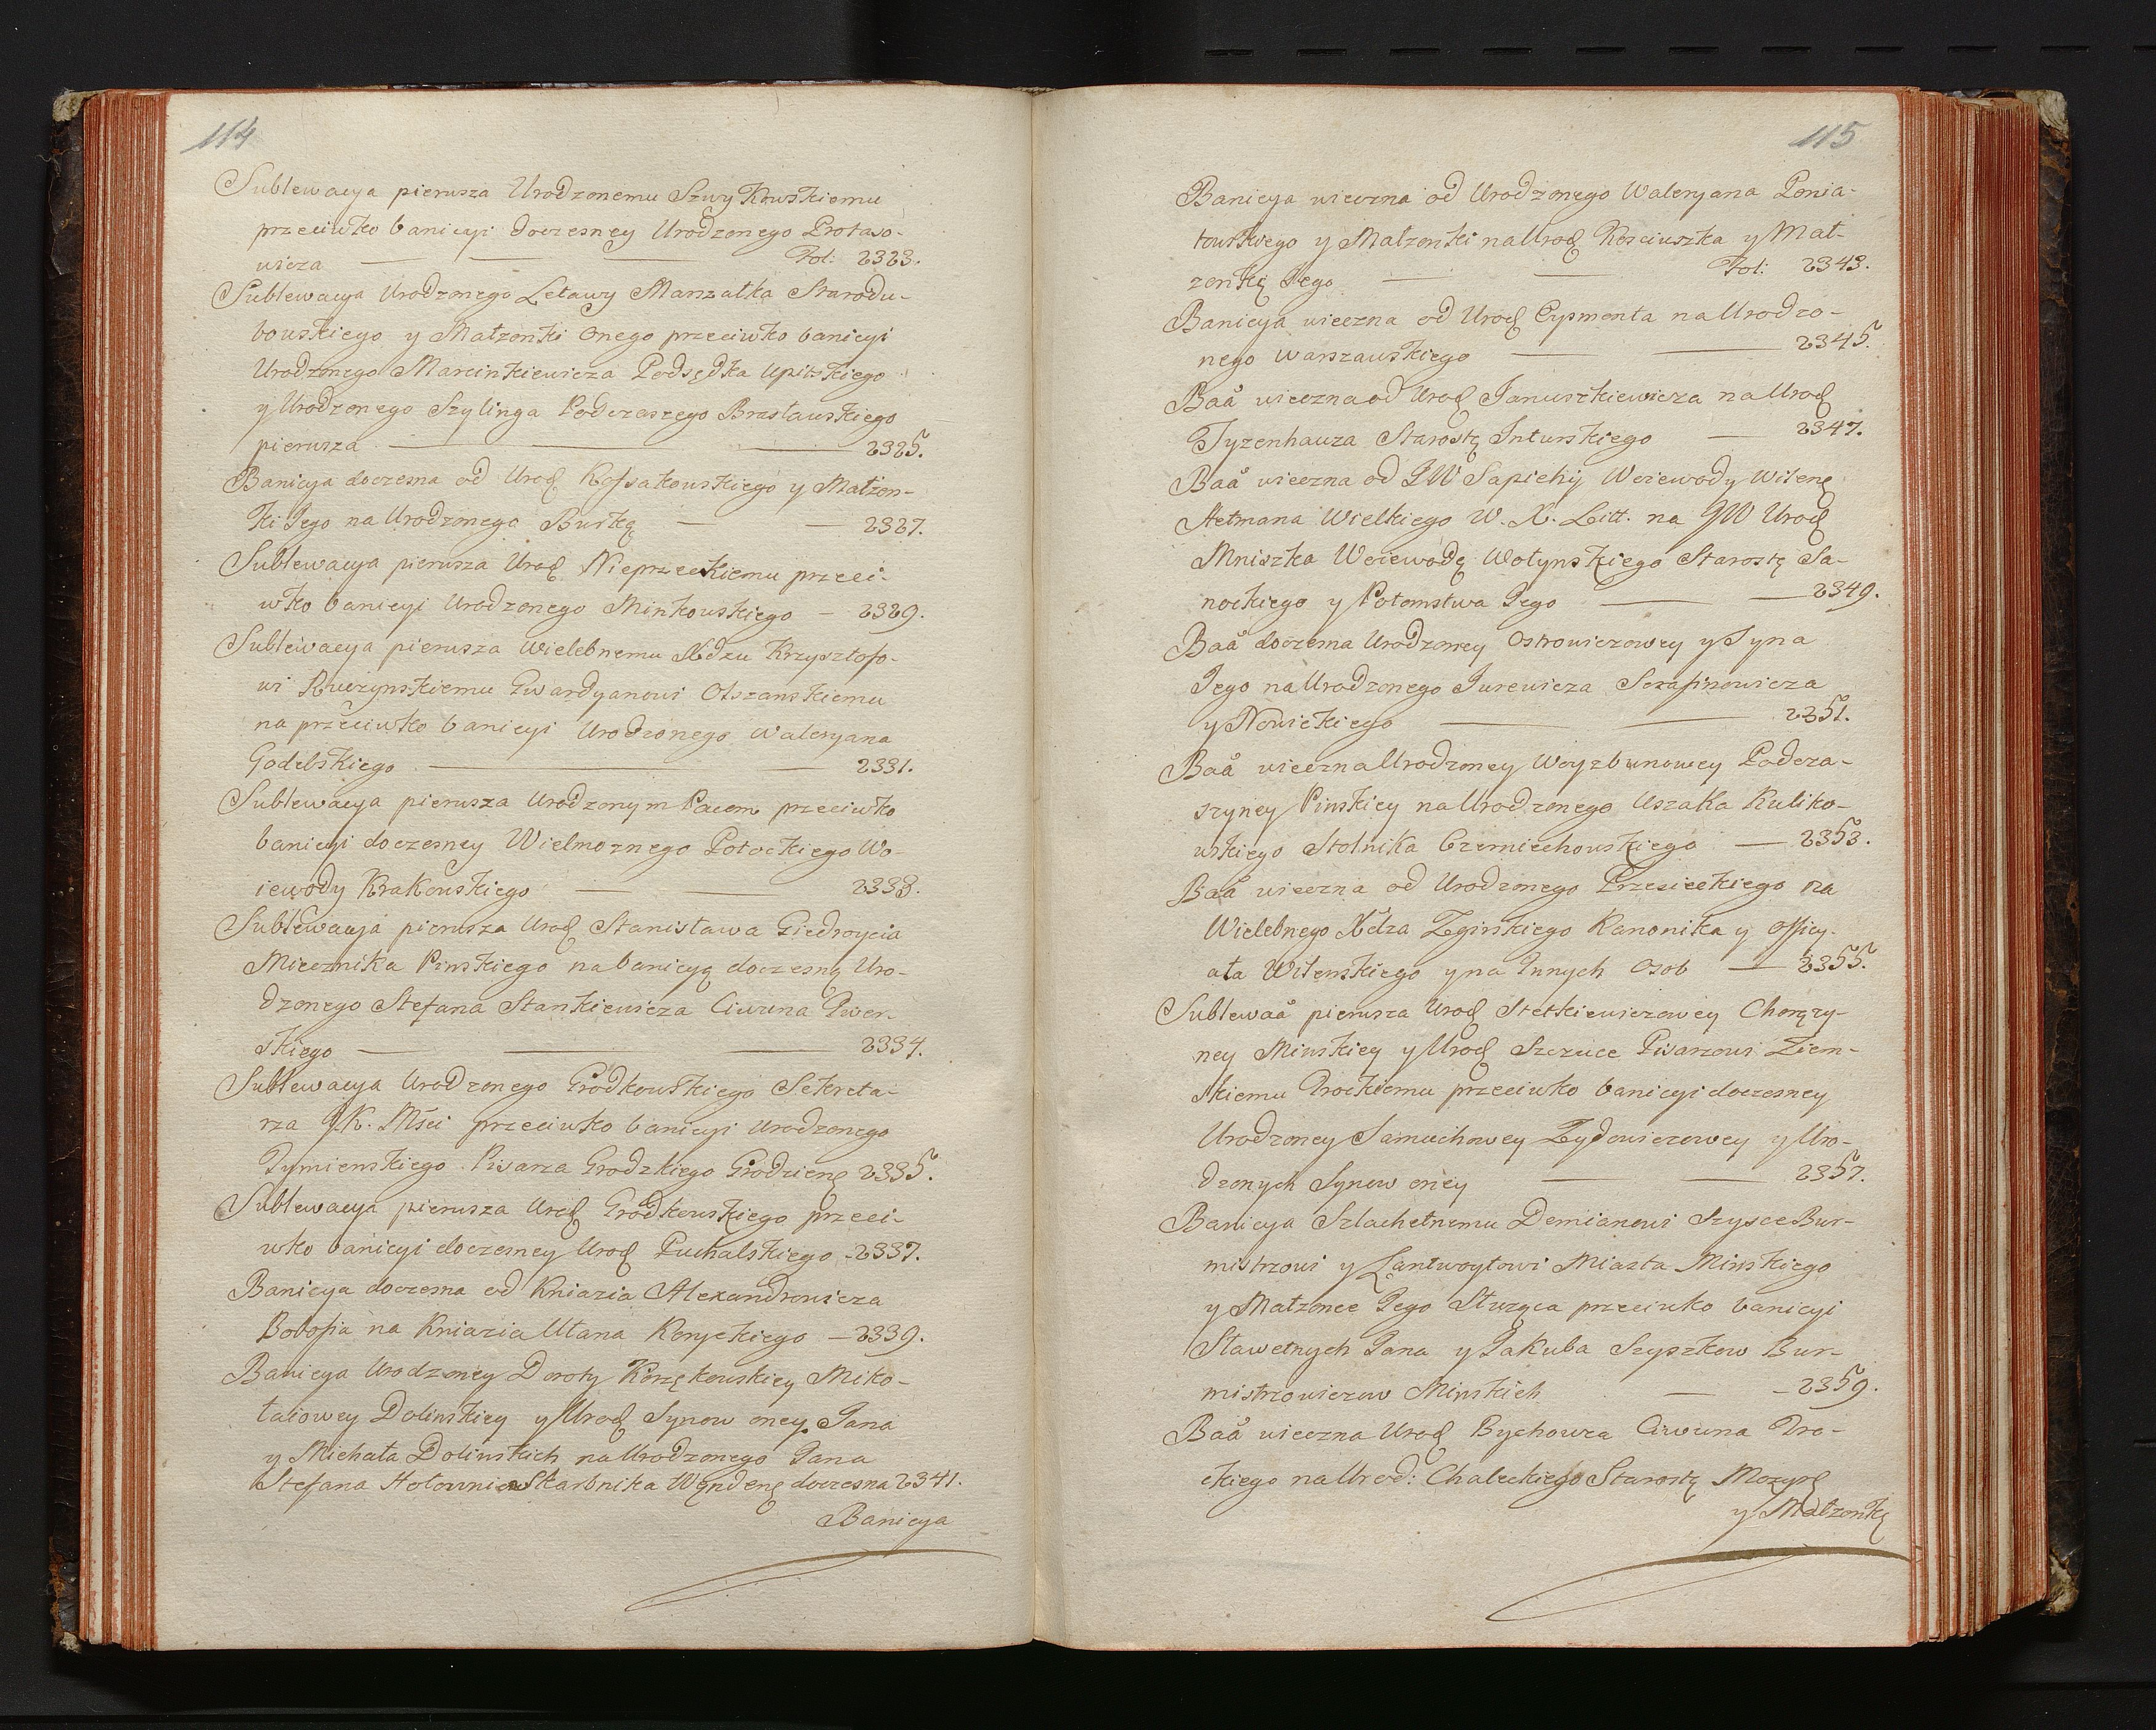 114
Sublewacya pierusza Urodzonemu Szuykowskiemu
przeciwko banicyi doczesney Urodzonego Protaso-
wicza Fol: 2323.
Sublewacya Urodzonego Letawy Marszałka Starodu-
bowskiego y Małzonki onego przeciwko banicyi
Urodzonego Marcinkiewicza Podsędka Upitskiego
y Urodzonego Szylinga Podczaszego Brasławskiego
pierusza 2325.
Banicya doczesna od Urod Kossakowskiego y Małzon-
ki Jego na Urodzonego Burkę 2327.
Sublewacya pierusza Urod Nieprzeckiemu przeci-
wko banicyi Urodzonego Minkowskiego 2329.
Sublewacya pierusza Wielebnemu Xdzu Krzysztofo-
wi Ruczynskiemu Gwardyanowi Olszanskiemu
na przeciwko banicyi Urodzonego Waleryana
Godebskiego 2331.
Sublewacya pierusza Urodzonym Pacom przeciwko
banicyi doczesney Wielmoznego Potockiego Wo-
iewody Krakowskiego 2333.
Sublewacya pierusza Urod Stanisława Giedroycia
Miecznika Pinskiego na banicyą doczesną Uro-
dzonego Stefana Stankiewicza Ciwuna Twer-
skiego 2334.
Sublewacya Urodzonego Grodkowskiego Sekreta-
rza JK. Mści przeciwko banicyi Urodzonego
Tymienskiego Pisarza Grodzkiego Grodzienę 2335.
Sublewacya pierusza Urod Grodkowskiego przeci-
wko banicyi doczesney Urod Puchalskiego 2337.
Banicya doczesna od Kniazia Alexandrowicza
Bobosia na Kniazia Ułana Koryckiego 2339.
Banicya Urodzoney Doroty Korzękowskiey Miko-
łaiowey Dolinskiey y Urod Synow oney Jana
y Michała Dolinskich na Urodzonego Jana
Stefana Hołownie Skarbnika Wędenę doczesna 2341.
Banicya
115
Banicya wieczna od Urodzonego Waleryana Ponia-
towskiego y Małzonki na Urod Kosciuszka y Mał-
zonkę Jego Fol: 2343.
Banicya wieczna od Urod Eysmonta na Urodzo-
nego Warszawskiego 2345.
Baa wieczna od Urod Januszkiewicza na Urod
Tyzenhauza Starostę Inturskiego 2347.
Baa wieczna od JW Sapiehy Woiewody Wilenę
Hetmana Wielkiego W. X. Litt. na JW Urod
Mniszka Woiewodę Wołynskiego Starostę Sa-
nockiego y Potomstwa Jego 2349.
Baa doczesna Urodzoney Ostrowiczowey y Syna
Jego na Urodzonego Jurewicza Serafinowicza
y Nowickiego 2351.
Baa wieczna Urodzoney Woyzbunowey Podcza-
szyney Pinskiey na Urodzonego Uszaka Kuliko-
wskiego Stolnika Czerniechowskiego 2353.
Baa wieczna od Urodzonego Przesieckiego na
Wielebnego Xdza Zginskiego Kanonika y Officy-
ała Wilenskiego y na Innych Osob 2355.
Sublewaa pierusza Urod Stetkiewiczowey Chorązy-
ney Minskiey y Urod Szczuce Pisarzowi Ziem-
skiemu Trockiemu przeciwko banicyi doczesney
Urodzoney Samuchowey Zydowiczowey y Uro-
dzonych Synow oney 2357.
Banicya Szlachetnemu Demianowi Szysce Bur-
mistrzowi y Lantwoytowi Miasta Minskiego
y Małzonce Jego Służąca przeciwko banicyi
Sławetnych Jana y Jakuba Szyszkow Bur-
mistrzowiczow Minskich 2359.
Baa wieczna Urod Bychowca Ciwuna Tro-
ckiego na Urod: Chaleckiego Starostę Mozyrę
y Małzonkę